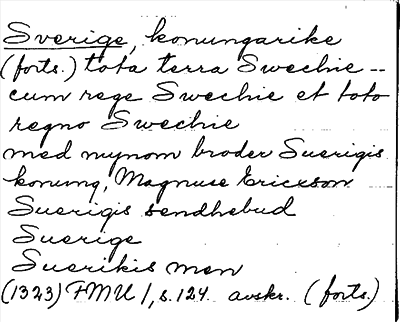 Sverige, konungarike
(forts.) tota terra Swechie --
cum rege Swechie et toto
regno Swechie
med mynom broder Suerigis
konung, Magnuse Ericxson
Suerigis sendhebud
Suerige
Suerikis men
(1323) FMU I, s. 124 avskr. (forts.)